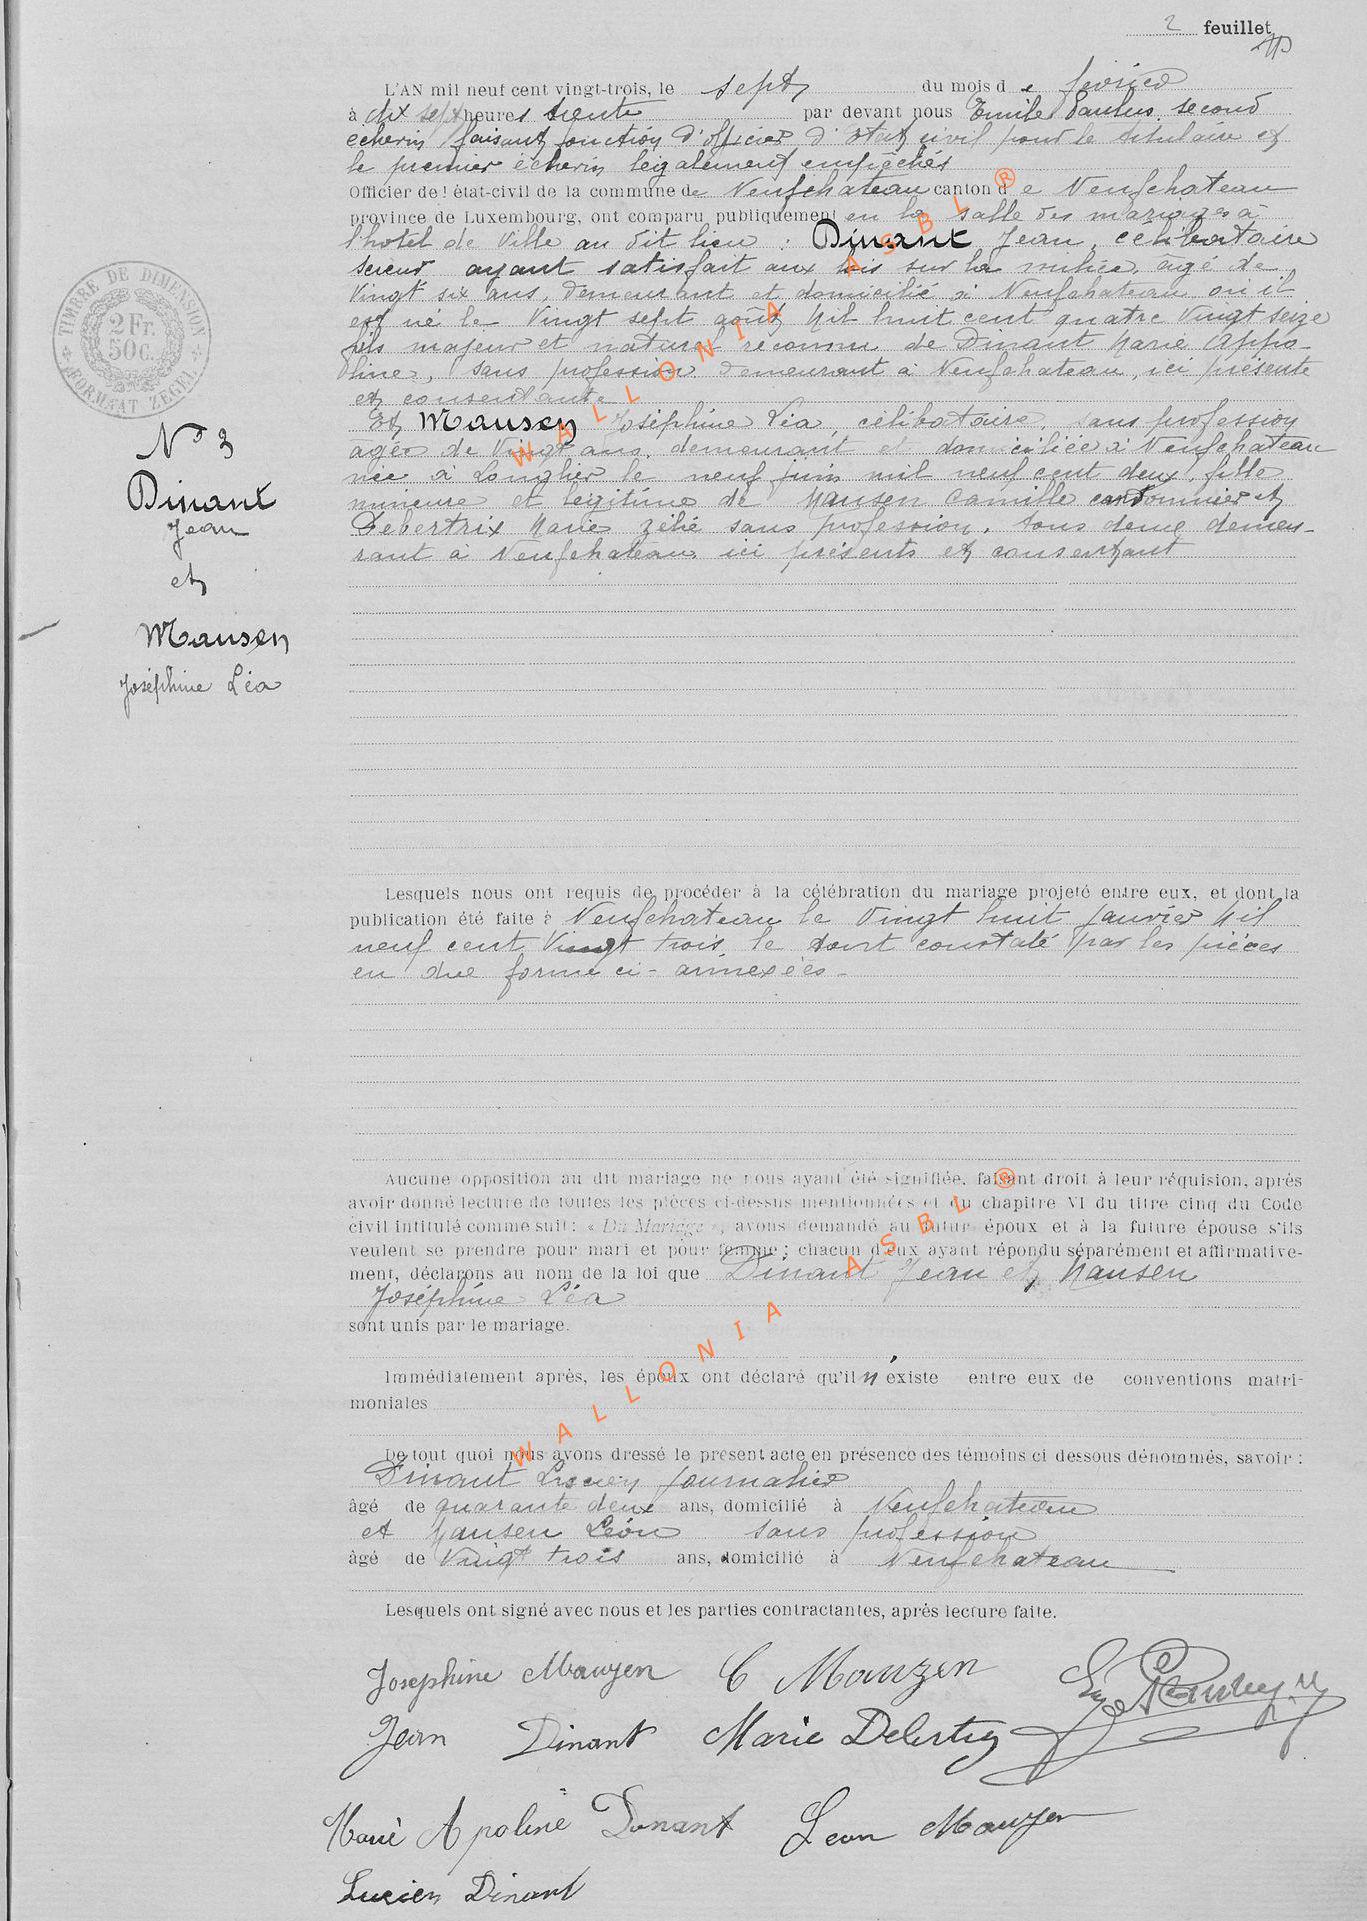 2 feuillet
L'AN mil neuf cent vingt-trois, le sept du mois de février
à dix sept heures trente par devant nous Emile Paulus, second
échevin faisant fonction d'officier d'état civil pour le titulaire et
le premier échevin légalement empêchés
Officier de l'état-civil de la commune de Neufchateau canton de Neufchateau
province de Luxembourg, ont comparu publiquement en la salle des mariages à
l'hotel de Ville au dit lieu : Dinant Jean, célibataire
scieur ayant satisfait aux lois sur la milice, âgé de
Vingt six ans, demeurant et domicilié à Neufchateau où il
est né le Vingt sept août Mil huit cent quatre Vingt seize
fils majeur et naturel reconnu de Dinant Marie Appo-
line, sans profession demeurant à Neufchateau, ici présente
et consentante
Et Mausen Joséphine Léa, célibataire, sans profession
âgée de Vingt ans, demeurant et domiciliée à Neufchateau
née à Longlier le neuf juin mil neuf cent deux, fille
mineure et légitime de Mausen Camille cantonnier et
Debertrix Marie Zélie sans profession, tous deux demeu-
rant à Neufchateau ici présents et consentant
TIMBRE DE DIMENSION
2 Fr.
50 C.
FORMAAT ZEGEL
N° 3
Dinant
Jean
et
Mausen
Joséphine Léa
Lesquels nous ont requis de procéder à la célébration du mariage projeté entre eux, et dont la
publication été faite à Neufchateau le Vingt huit Janvier Mil
neuf cent Vingt trois, le tout constaté par les pièces
en due forme ci-annexées-
Aucune opposition au dit mariage ne nous ayant été signifiée, faisant droit à leur réquision, après
avoir donné lecture de toutes les pièces ci-dessus mentionnées et du chapitre VI du titre cinq du Code
civil intitulé comme suit : « Du Mariage », avons demandé au futur époux et à la future épouse s'ils
veulent se prendre pour mari et pour femme ; chacun d'eux ayant répondu séparément et affirmative-
ment, déclarons au nom de la loi que Dinant Jean et Mausen
Joséphine Léa
sont unis par le mariage.
Immédiatement après, les époux ont déclaré qu'il n'existe entre eux de conventions matri-
moniales
De tout quoi nous avons dressé le présent acte en présence des témoins ci dessous dénommés, savoir :
Dinant Lucien journalier
âgé de quarante deux ans, domicilié à Neufchateau
et Mausen Léon sans profession
âgé de Vingt trois ans, domicilié à Neufchateau
Lesquels ont signé avec nous et les parties contractantes, après lecture faite.
Josephine Mauzen C Mauzen
Jean Dinant Marie
Marie Apoline Dinant Leon Mauzen
Lucien Dinant
WALLONIA ASBL ®
WALLONIA ASBL ®